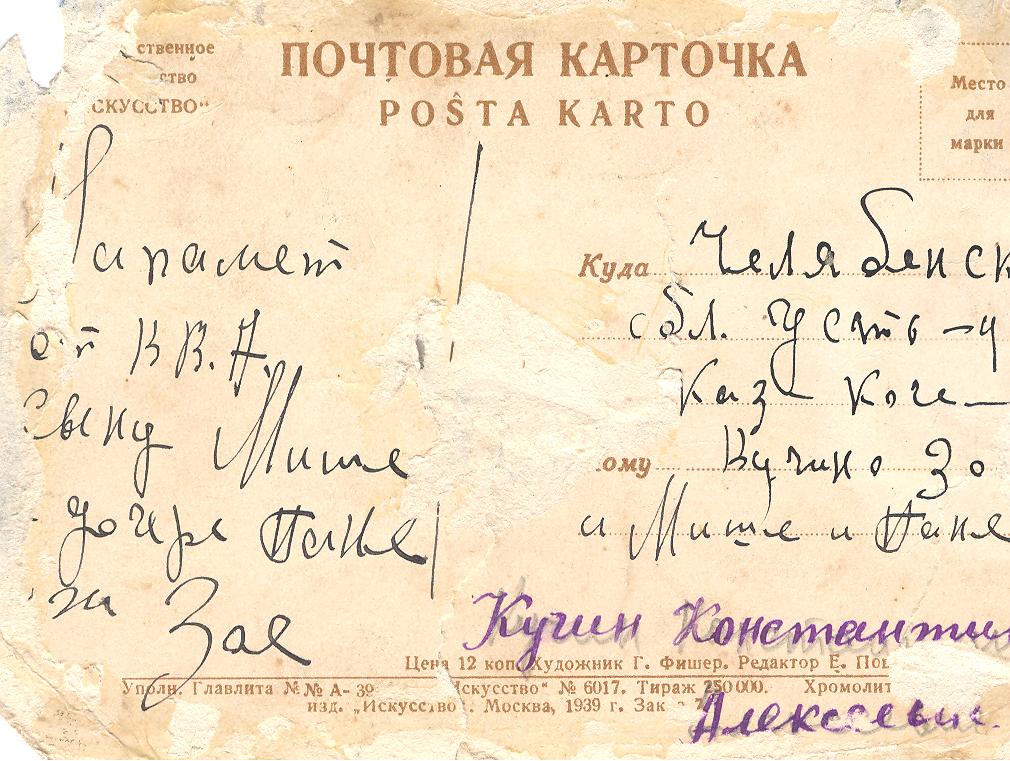 ственное
ство
СКУССТВО"
ПОЧТОВАЯ КАРТОЧКА
POŜTA KARTO
Место
для
марки
от К В. А.
сыну Мише
дочере Пане
Зое
Куда Челябенск
обл. Усть-у
Каз Коче-
ому Кучино Зо
и Мише и Пане
Кучин Константин
Алексеевич.
Цена 12 коп. Художник Г. Фишер. Редактор Е. Пов
Уполн. Главлита №№ А-39 Искусство" № 6017. Тираж 250 000. Хромолит
изд. „Искусство". Москва, 1939 г. Зак